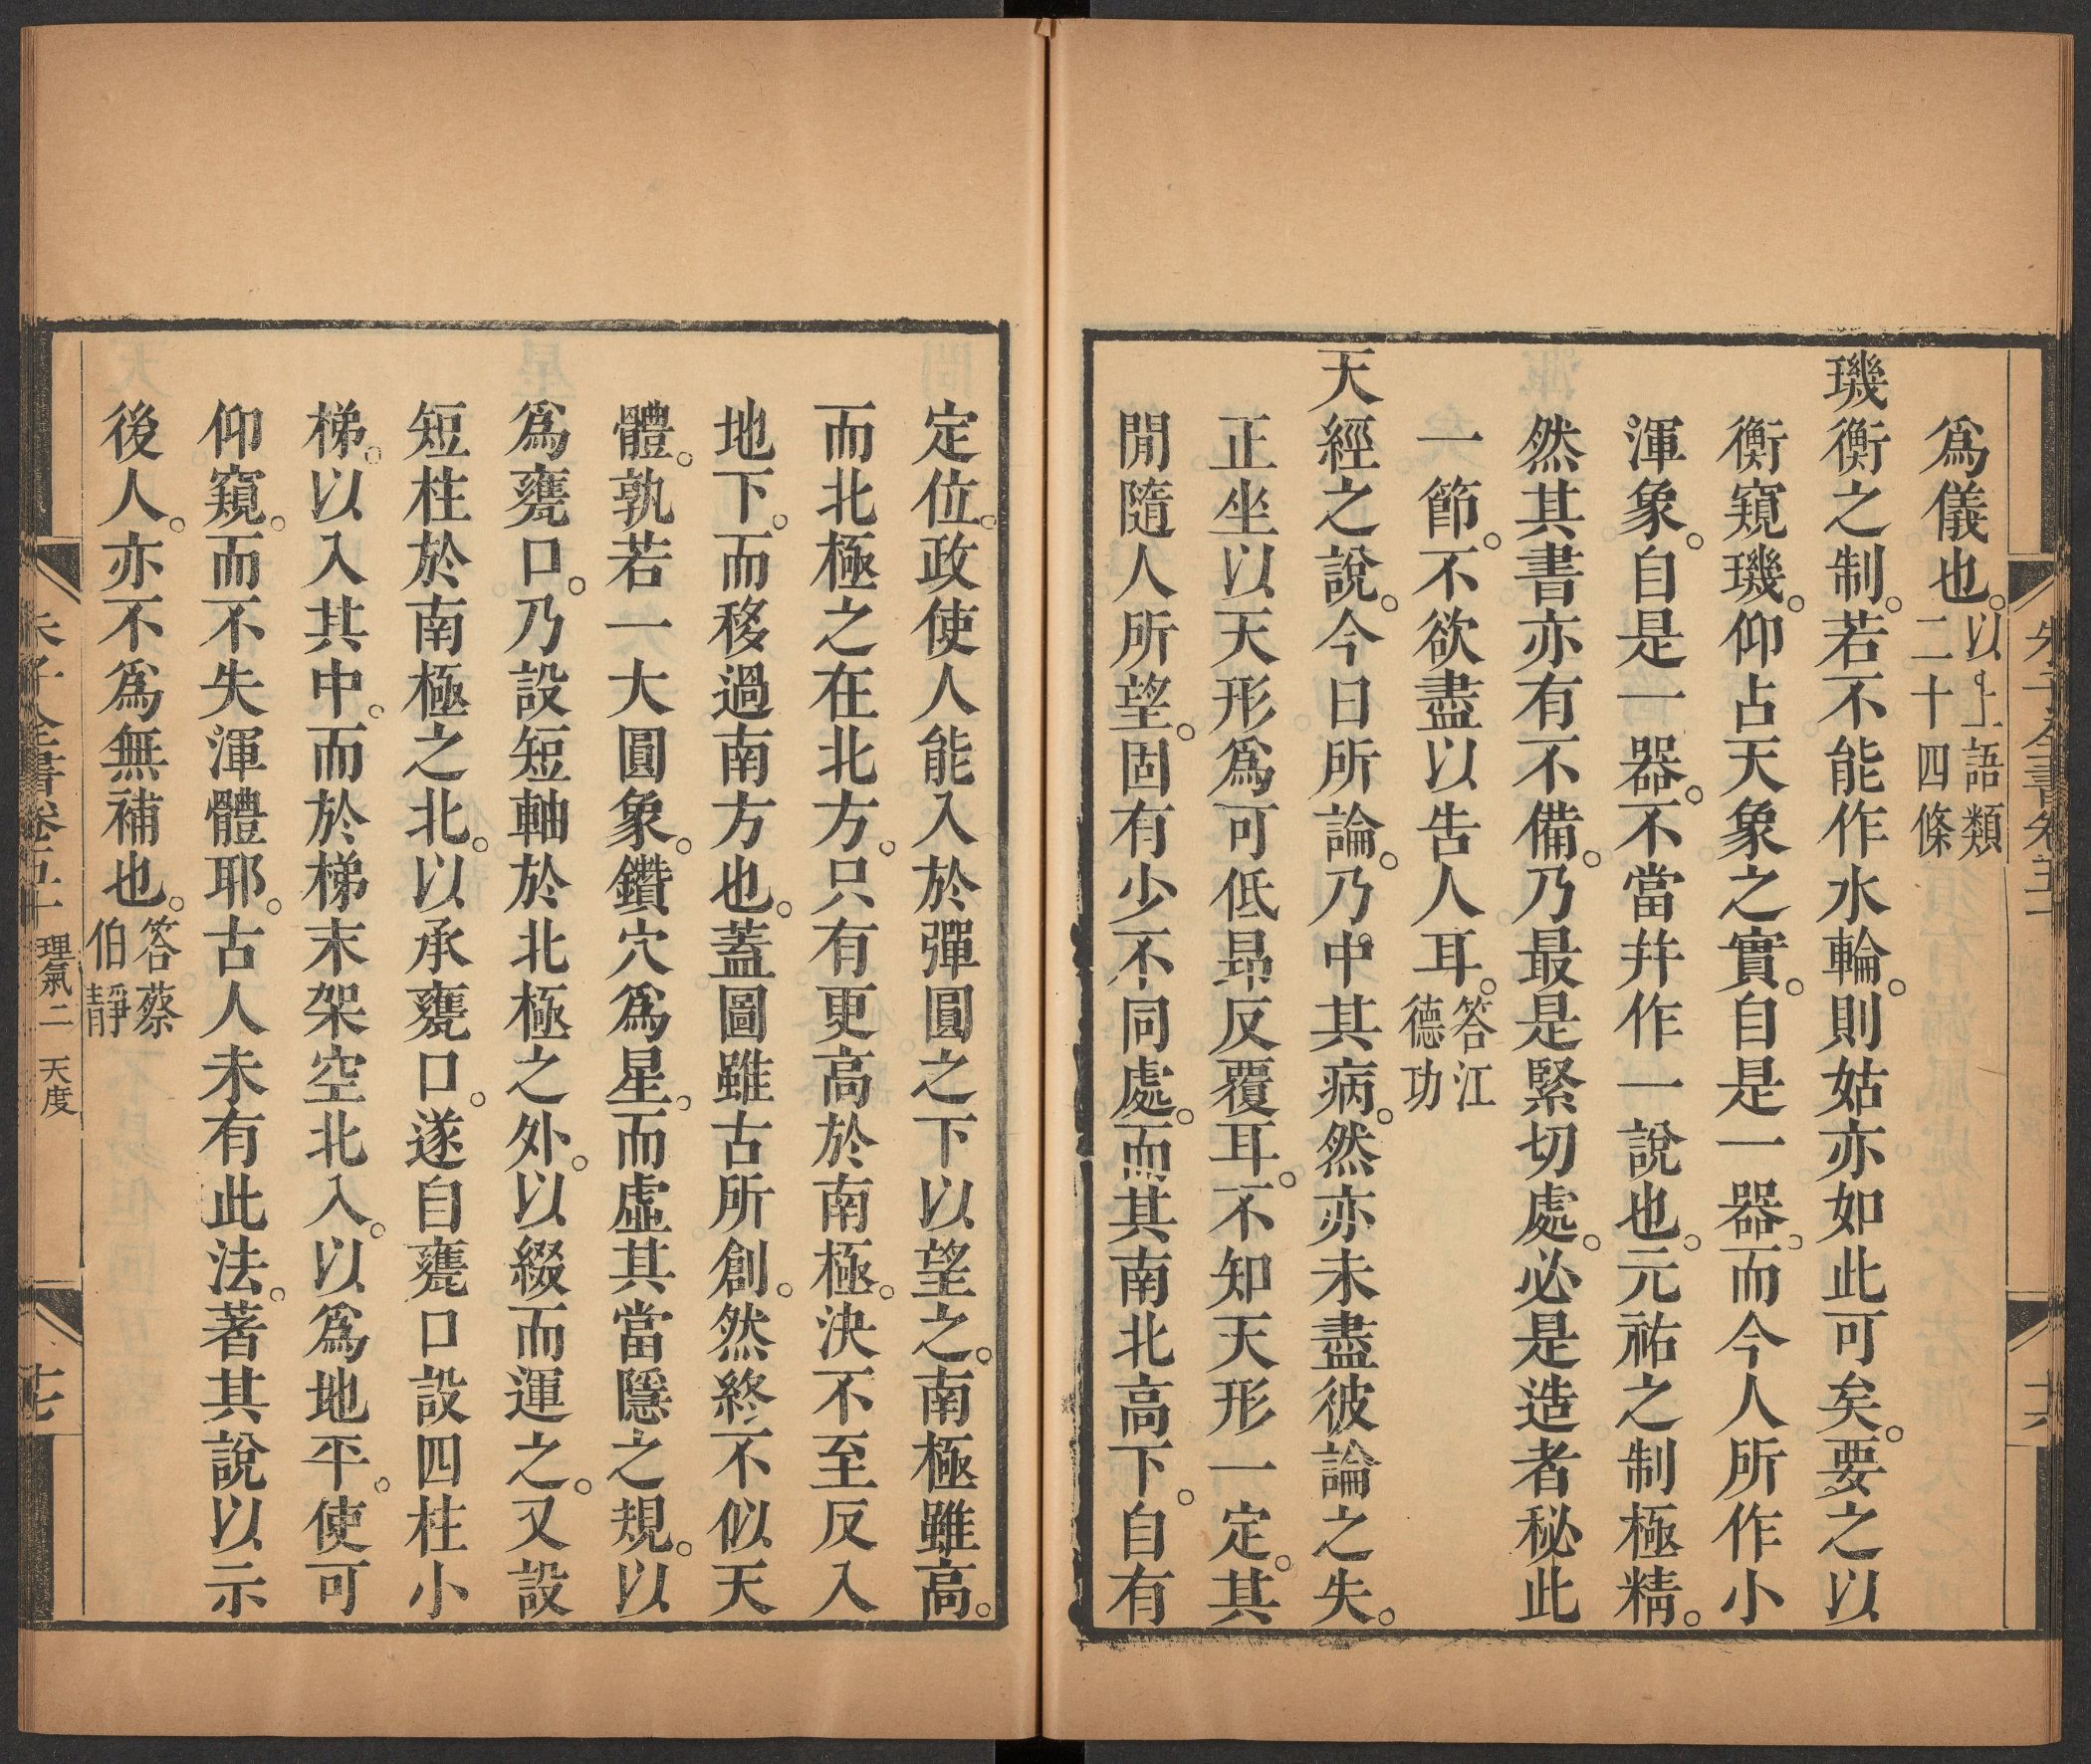 爲儀也。以上語類二十四條
璣衡之制。若不能作水輪。則姑亦如此可矣。要之以
衡窺璣。仰占天象之實。自是一器。而今人所作小
渾象。自是一器。不當幷作一說也。元祐之制極精。
然其書亦有不備。乃最是緊切處。必是造者秘此
一節。不欲盡以告人耳。答江德功
天經之說。今日所論。乃中其病。然亦未盡彼論之失。
正坐以天形爲可低昻反覆耳。不知天形一定。其
閒隨人所望。固有少不同處。而其南北高下。自有
定位。政使人能入於彈圓之下以望之。南極雖高。
而北極之在北方。只有更高於南極。決不至反入
地下。而移過南方也。蓋圖雖古所創。然終不似天
體。孰若一大圓象。鑽穴爲星。而虛其當隱之規。以
爲甕口。乃設短軸於北極之外。以綴而運之。又設
短柱於南極之北。以承甕口。遂自甕口設四柱小
梯。以入其中。而於梯末架空北入。以爲地平。使可
仰窺。而不失渾體耶。古人未有此法。著其說以示
後人。亦不爲無補也。答蔡伯靜
朱子全書卷五十 理氣二 天度